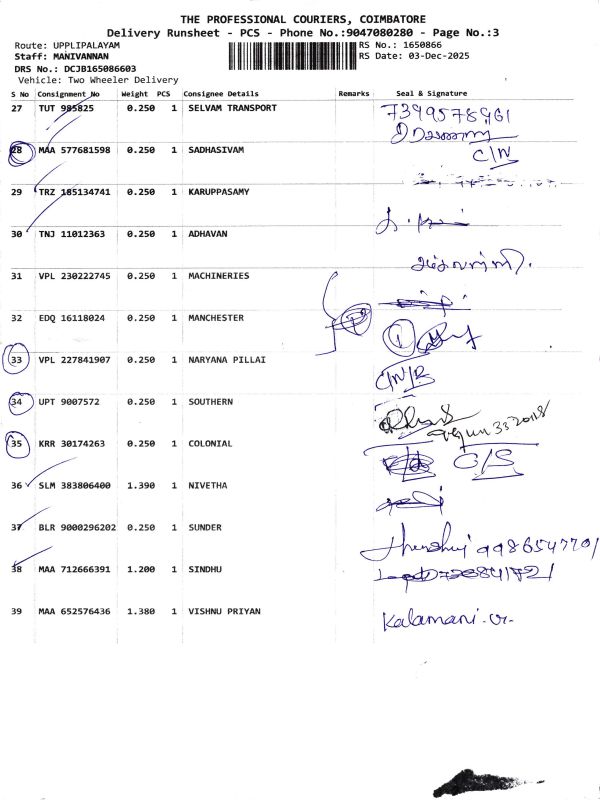 THE PROFESSIONAL COURIERS, COIMBATORE
Delivery Runsheet - PCS - Phone No.:9047080280 - Page No.:3
Route: UPPLIPALAYAM RS No.: 1650866
Staff: MANIVANNAN RS Date: 03-Dec-2025
DRS No.: DCJB165086603
Vehicle: Two Wheeler Delivery
S No Consignment No Weight PCS Consignee Details Remarks Seal & Signature
27 TUT 985825 0.250 1 SELVAM TRANSPORT
28 MAA 577681598 0.250 1 SADHASIVAM C/N
29 TRZ 185134741 0.250 1 KARUPPASAMY
30 TNJ 11012363 0.250 1 ADHAVAN
31 VPL 230222745 0.250 1 MACHINERIES
32 EDQ 16118024 0.250 1 MANCHESTER
33 VPL 227841907 0.250 1 NARYANA PILLAI C/N/R
34 UPT 9007572 0.250 1 SOUTHERN
35 KRR 30174263 0.250 1 COLONIAL O/S
36 SLM 383806400 1.390 1 NIVETHA
37 BLR 9000296202 0.250 1 SUNDER
38 MAA 712666391 1.200 1 SINDHU
39 MAA 652576436 1.380 1 VISHNU PRIYAN Kalamani